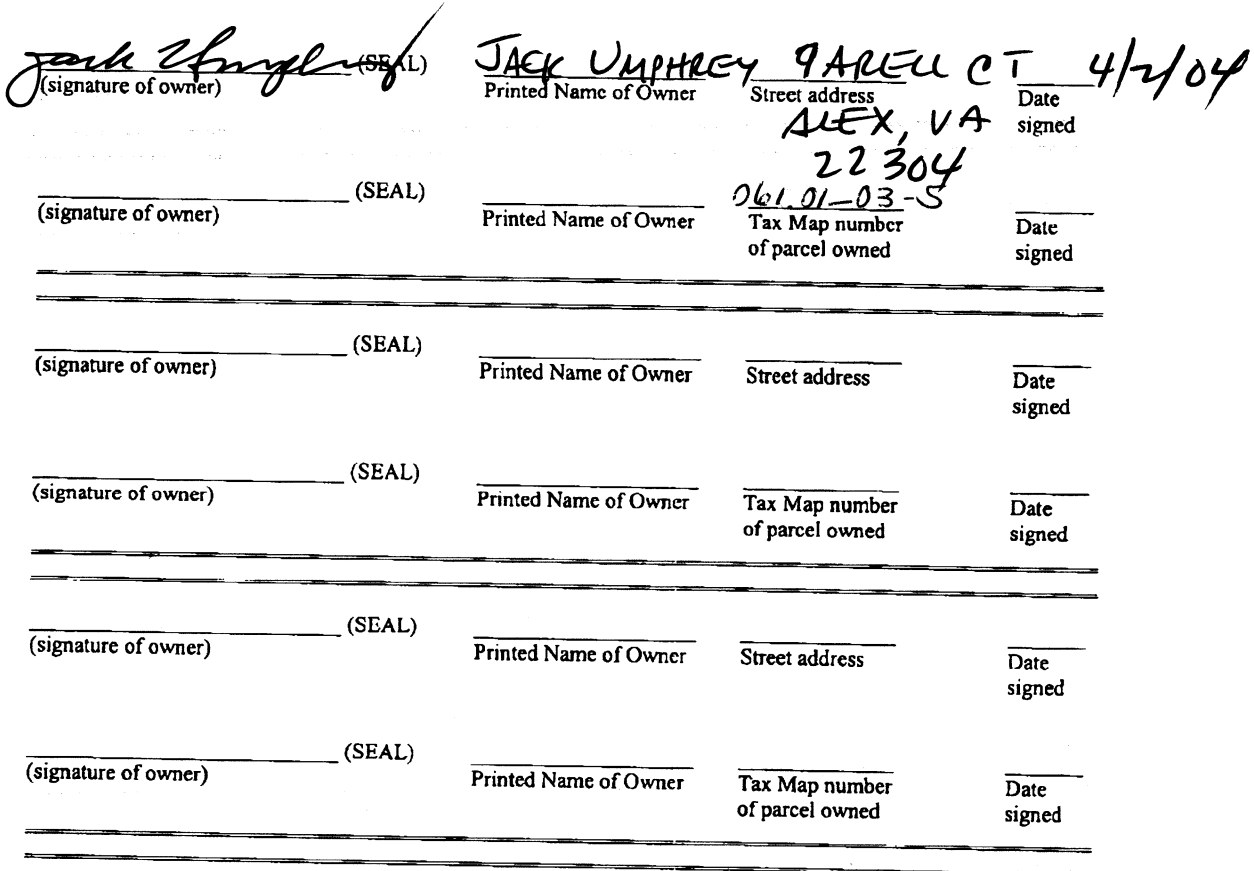 Jack Umphrey (SEAL) JACK UMPHREY 9 ARELL CT 4/2/04
(signature of owner) Printed Name of Owner Street address Date signed
ALEX, VA
22304
061.01-03-5
(SEAL)
(signature of owner) Printed Name of Owner Tax Map number of parcel owned Date signed
(SEAL)
(signature of owner) Printed Name of Owner Street address Date signed
(SEAL)
(signature of owner) Printed Name of Owner Tax Map number of parcel owned Date signed
(SEAL)
(signature of owner) Printed Name of Owner Street address Date signed
(SEAL)
(signature of owner) Printed Name of Owner Tax Map number of parcel owned Date signed